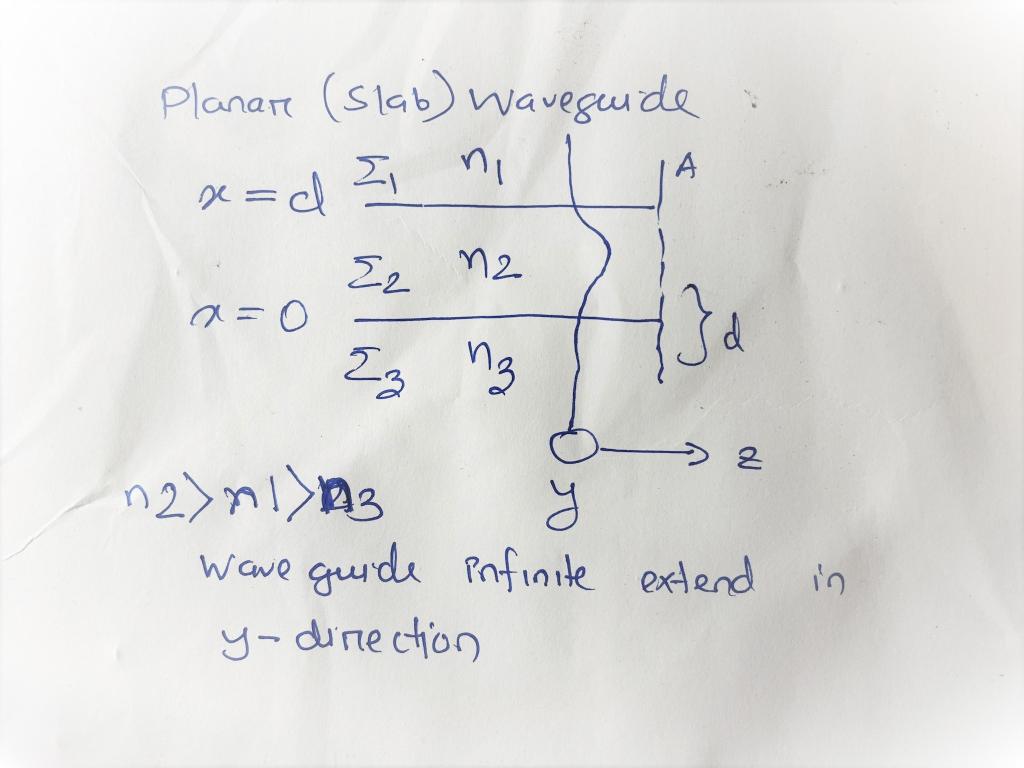 Planar (Slab) Waveguide
x = d Σ1 n1 A
Σ2 n2
x = 0 d
Σ3 n3
z
n2 > n1 > n3 y
Wave guide infinite extend in
y-direction